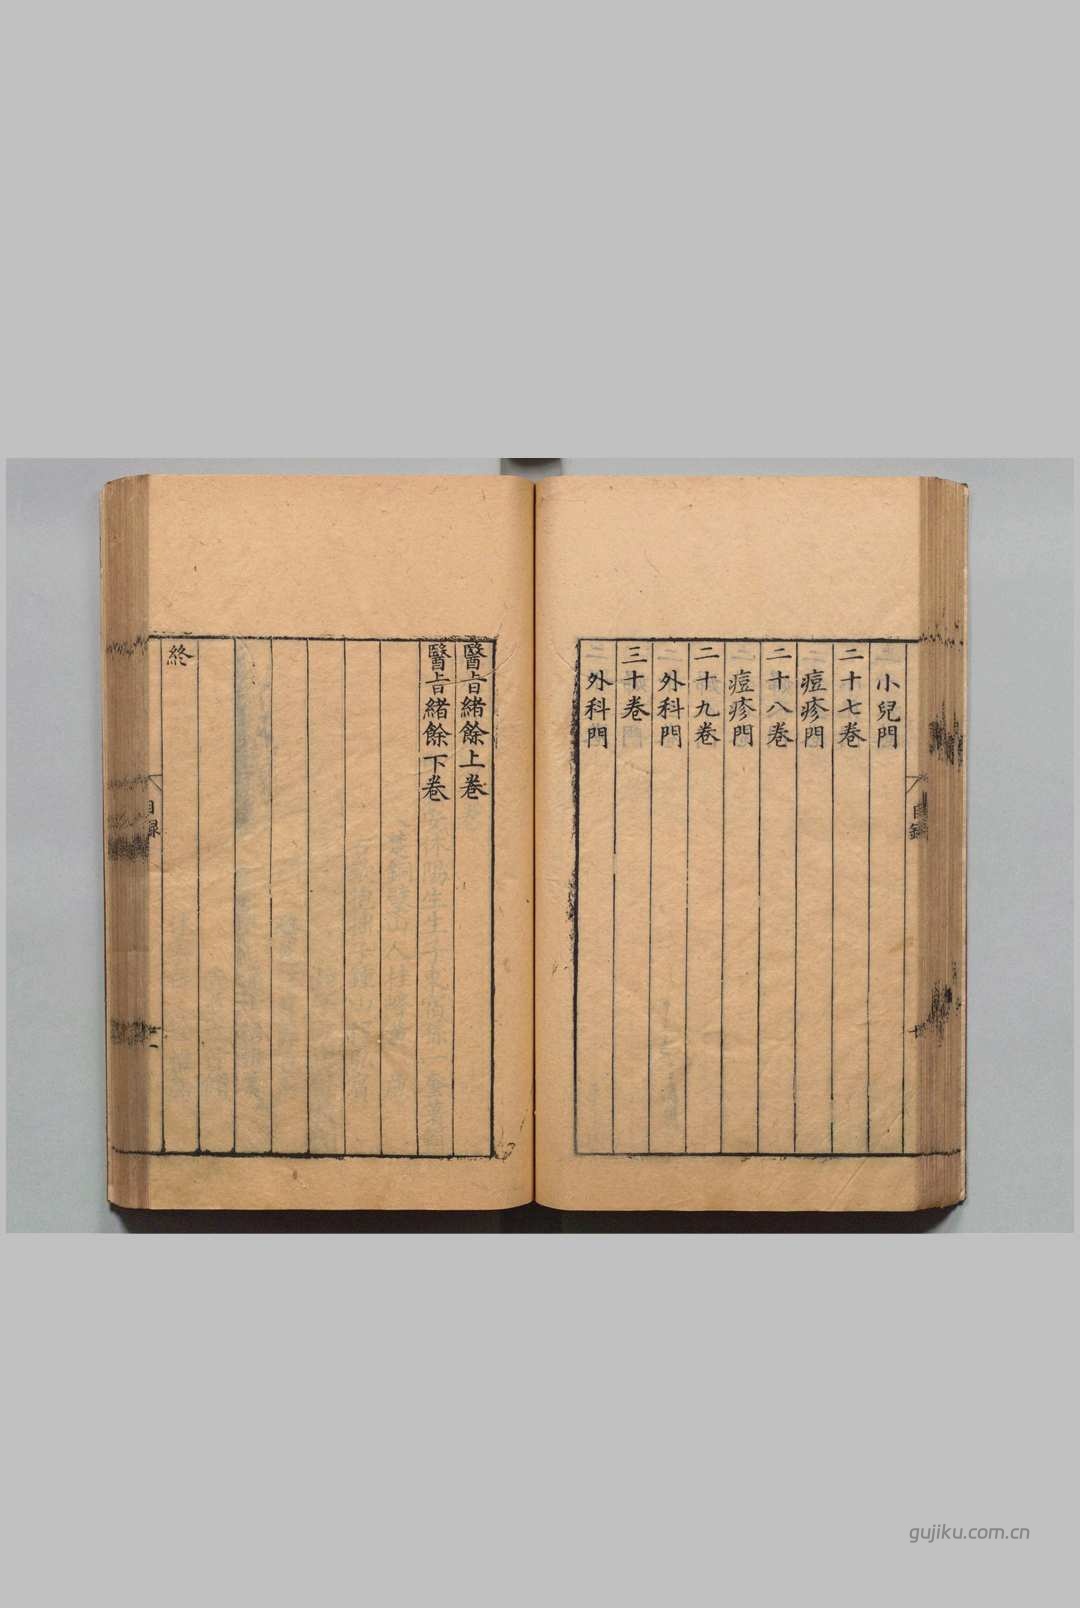 小兒門
二十七卷
痘疹門
二十八卷
痘疹門
二十九卷
外科門
三十卷
外科門
目錄
醫旨緒餘上卷
醫旨緒餘下卷
終
目錄
gujiku.com.cn